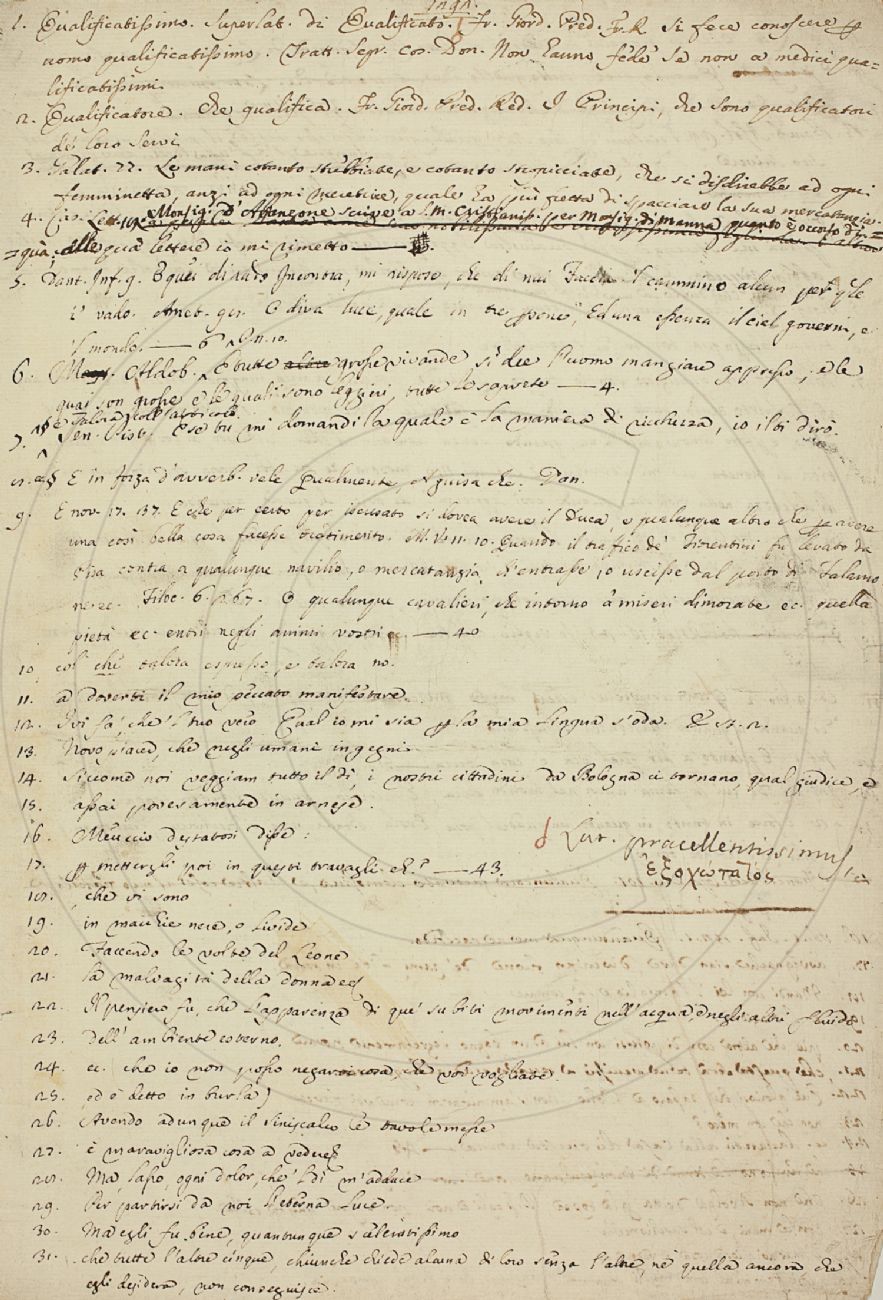 1. Qualificatissimo. Superlat. di Qualificato. Fr. Giord. Pred. Fr. R. si fece conoscere p
uomo qualificatissimo. Tratt. Segr. cos. Don. Non hanno fede se non a medici qua=
lificatissimi.
2. Qualificatore. Che qualifica. Fr. Giord. Pred. Red. I Principi, che sono qualificatori
de' loro servi
3. Galat. 77. Le mani cotanto stribbiate, e cotanto stropicciate, che si disdirebbe ad ogni
femminetta, anzi ad ogni meretrice, quale ha più fretta di spacciare la sua mercatanzia.
4. Cas. Lett. Monsig. d'Avanzone scrive a S. M. Cristianiss. per Monsig. di Manna quanto è occorso di =
= quà, alle qua' lettere io mi rimetto
5. Dant. Inf. 9. E quei di rado Incontra, mi rispose, che di nui Faccia 'l cammino alcun per qle
i' vado. Amet. O diva luce, quale in tre persone, Ed una essenza il ciel governi, e
il mondo. — 6
6. Aldob. E tutte grosse vivande, si dee l'uomo mangiare appresso, e le
quai son grosse e le quali sono leggieri, tutte lo saprete — 4.
7. e talora coll'articolo
Sen. Pist. E se tu mi domandi la quale è la maniera di ricchezza, io il ti dirò.
8. E in forza d'avverb. vale Qualmente, A guisa che. Dan.
9. E nov. 17. 37. E che per certo per iscusato si dovea avere il Duca, e qualunque altro che p avere
una così bella cosa facesse tradimento. M. V. 11. 10. Quando il traffico de' Fiorentini fu levato da
Pisa contra a qualunque navilio, o mercatanzia, ch'entrasse, o uscisse dal porto di Talamo
ne ec. Filoc. 6. 67. O qualunque cavalieri, che intorno a' miseri dimorate ec. quella
pietà ec. entri negli animi vostri ec. — 40
10. col che talora espresso, e talora no.
11. a doverti il mio peccato manifestare.
12. Ivi fa, che 'l tuo vero Qual io mi sia p la mia lingua s'oda. E st. 2.
13. Novo piacer, che negli umani ingegni.
14. Siccome noi veggiam tutto il dì, i nostri cittadini da Bologna ci tornano, qual giudice, e
15. assai poveramente in arnese.
16. Meuccio destatosi disse:
d Lat. praecellentissimus
ἐξοχώτατος
17. p mettergli poi in questi travagli ec. — 43.
18. che vi sono
19. in macchie nere, o livide
20. Faccendo le volte del Leone
21. la malvagità della donna
22. Il pensiero fu, che l'apparenza di que' subiti movimenti nell'acqua, e negli altri fluidi
23. dell'ambiente esterno.
24. ec. che io non posso negar cosa, che voi vogliate.
25. ed è detto in burla)
26. Avendo adunque il siniscalco le tavole messe
27. è maravigliosa cosa a vedere
28. Ma, lasso, ogni dolor, che 'l dì m'adduce
29. Per partirsi da noi l'eterna luce.
30. Ma egli fu bene, quantunque scelleratissimo
31. che tutte l'altre cinque, chiunche chiede alcuna di loro senza l'altre, nè quella ancora che
egli desidera, non conseguisce.